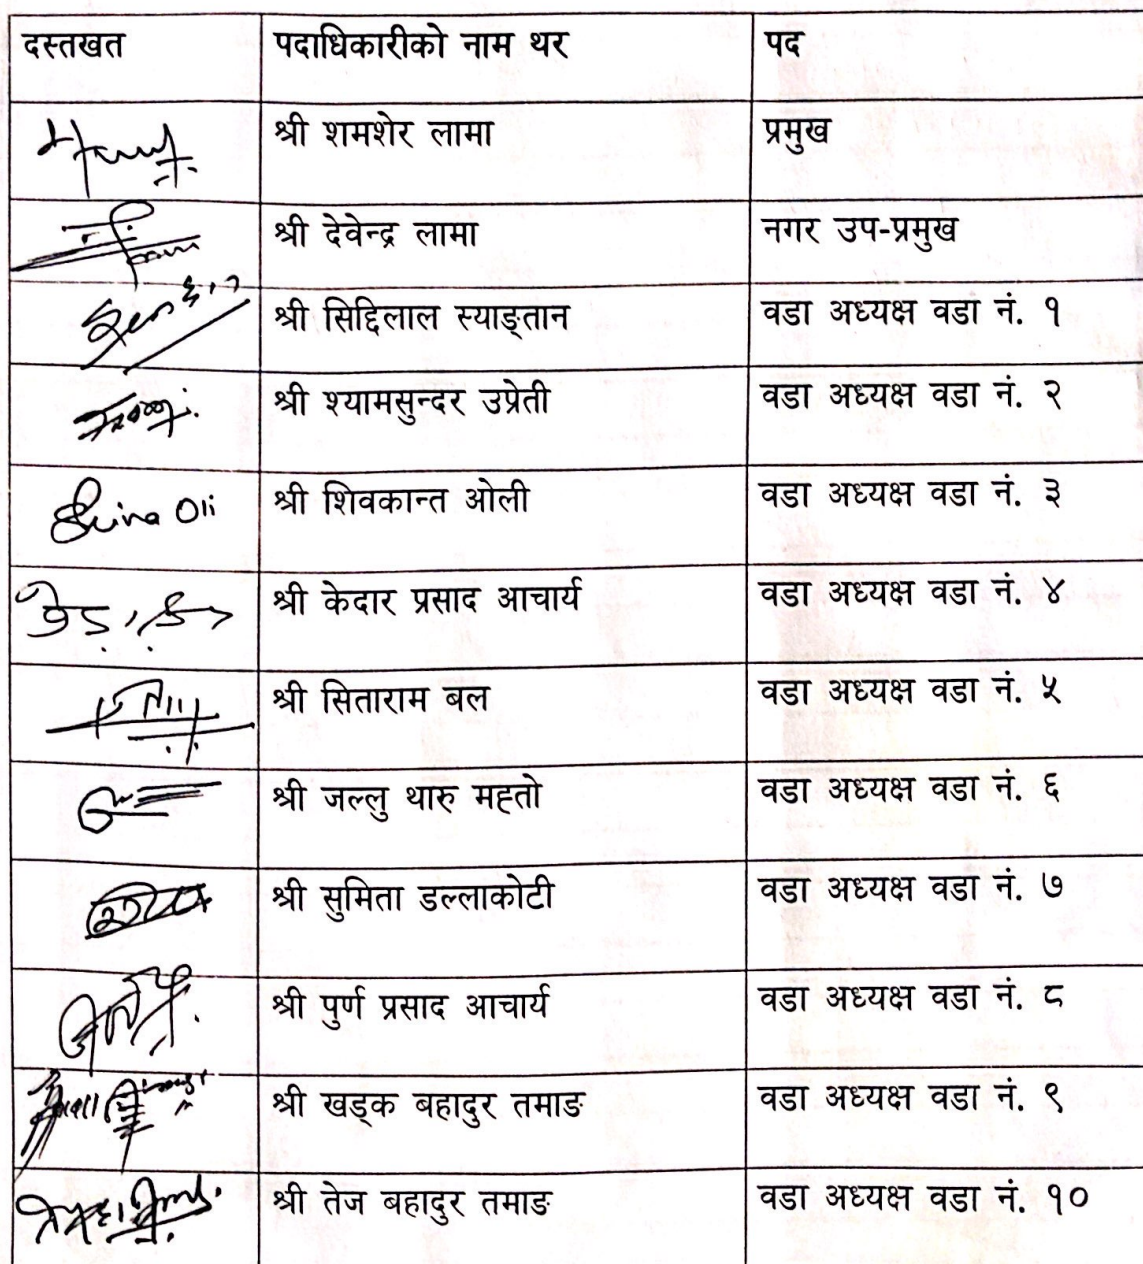 दस्तखत पदाधिकारीको नाम थर पद
श्री शमशेर लामा प्रमुख
श्री देवेन्द्र लामा नगर उप-प्रमुख
श्री सिद्दिलाल स्याङ्तान वडा अध्यक्ष वडा नं. १
श्री श्यामसुन्दर उप्रेती वडा अध्यक्ष वडा नं. २
Shiva Oli श्री शिवकान्त ओली वडा अध्यक्ष वडा नं. ३
श्री केदार प्रसाद आचार्य वडा अध्यक्ष वडा नं. ४
श्री सिताराम बल वडा अध्यक्ष वडा नं. ५
श्री जल्लु थारु मह्तो वडा अध्यक्ष वडा नं. ६
श्री सुमिता डल्लाकोटी वडा अध्यक्ष वडा नं. ७
श्री पुर्ण प्रसाद आचार्य वडा अध्यक्ष वडा नं. ८
श्री खड्क बहादुर तमाङ वडा अध्यक्ष वडा नं. ९
श्री तेज बहादुर तमाङ वडा अध्यक्ष वडा नं. १०